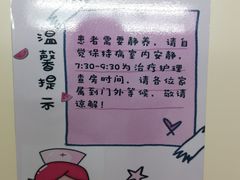 温馨提示
患者需要静养，请自
觉保持病室内安静，
7:30-9:30为治疗护理
查房时间，请各位家
属到门外等候，敬请
谅解！